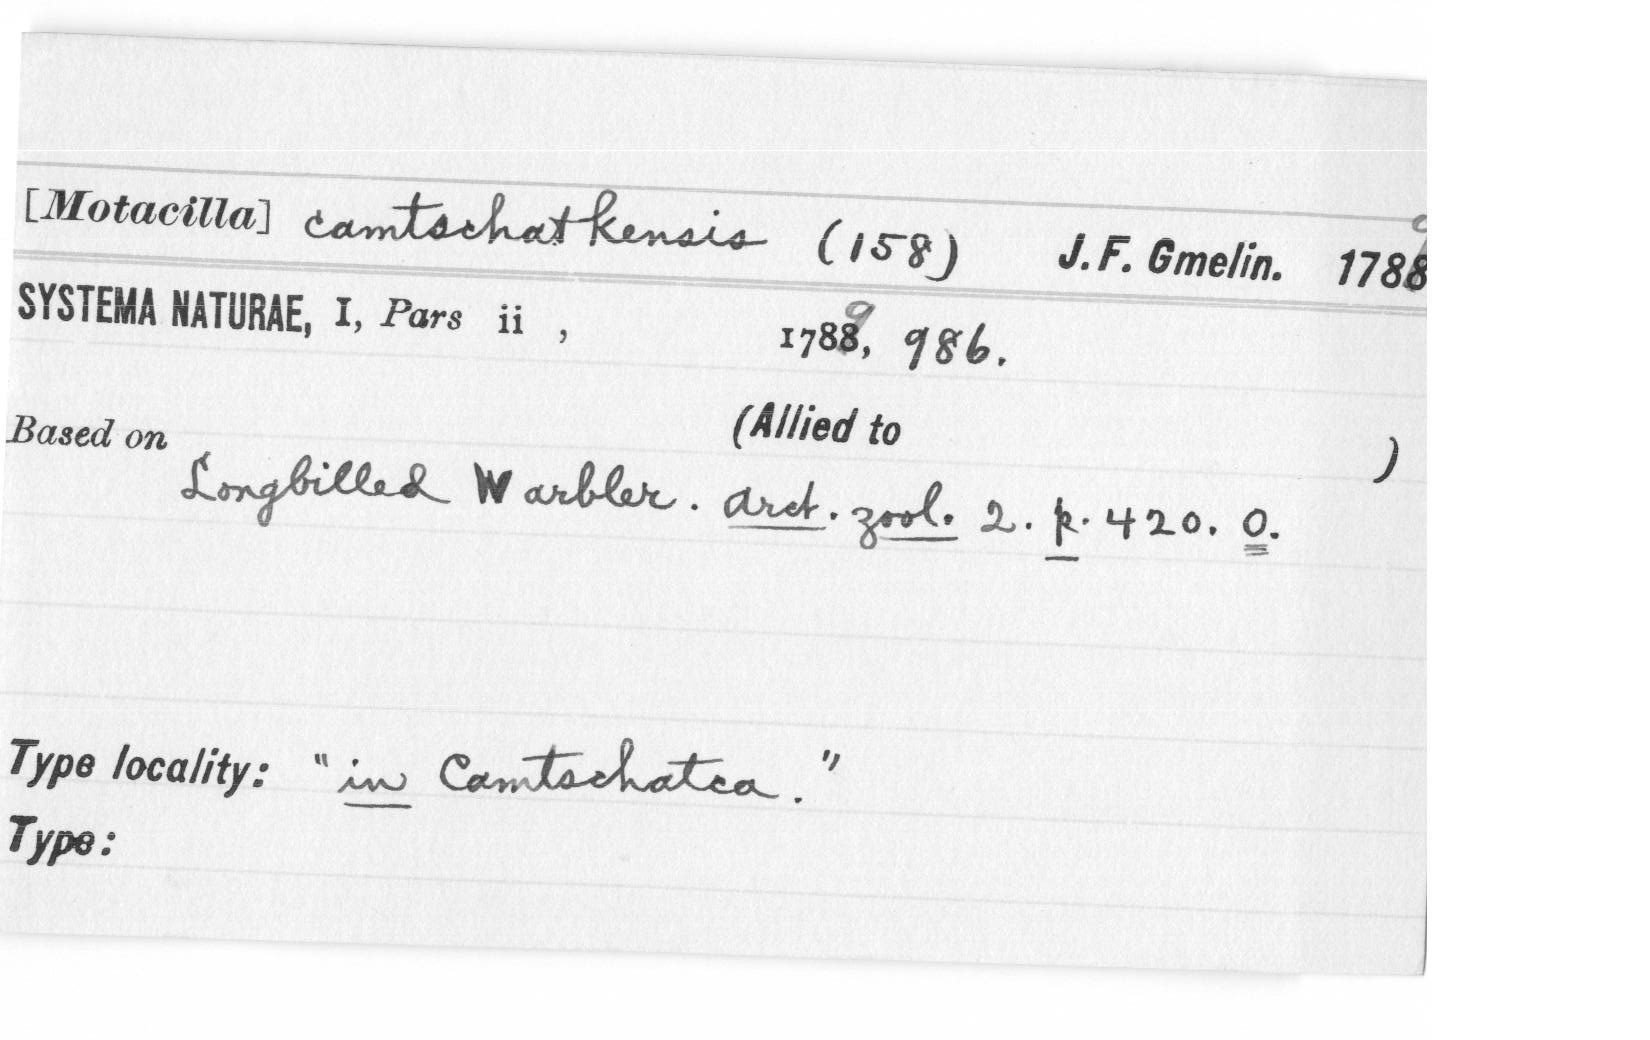 [Motacilla] camtschatkensis (158) J. F. Gmelin. 1788 9
SYSTEMA NATURAE, I, Pars ii , 1788, 9 986.
Based on (Allied to )
Longbilled Warbler. Arct. zool. 2. p. 420. O.
Type locality: "in Camtschatca."
Type: